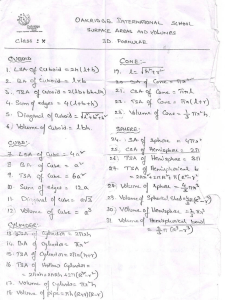 OAKRIDGE INTERNATIONAL SCHOOL
SURFACE AREAS AND VOLUMES
Class : X
3D FORMULAE
CUBOID
1. LSA of Cuboid = 2h(l+b)
2. BA of Cuboid = lb
3. TSA of Cuboid = 2(lb+bh+lh)
4. Sum of edges = 4(l+b+h)
5. Diagonal of Cuboid = √l²+b²+h²
6. Volume of Cuboid = lbh
CUBE:
7. LSA of Cube = 4a²
8. BA of Cube = a²
9. TSA of Cube = 6a²
10. Sum of edge = 12a
11. Diagonal of Cube = a√3
12. Volume of Cube = a³
CYLINDER:
13. of Cylinder = 2πrh
14. BA of Cylinder = πr²
15. TSA of Cylinder = 2πr(h+r)
16. TSA of Hollow Cylinder =
17. Volume of Cylinder = πr²h
18. Volume of pipe = πh(R+r)(R-r)
CONE:-
19. l = √h²+r²
20. BA of Cone = πr²
21. CSA of Cone = πrl
22. TSA of Cone = πr(l+r)
23. Volume of Cone = ⅓πr²h
SPHERE:
24. SA of Sphere = 4πr²
25. CSA of Hemisphere =
26. TSA of Hemisphere =
27. TSA of Hemispherical
28. Volume of Sphere = 4/3 πr³
29. Volume of Spherical Shell
30. Volume of Hemisphere = 2/3 πr³
31. Volume of Hemispherical